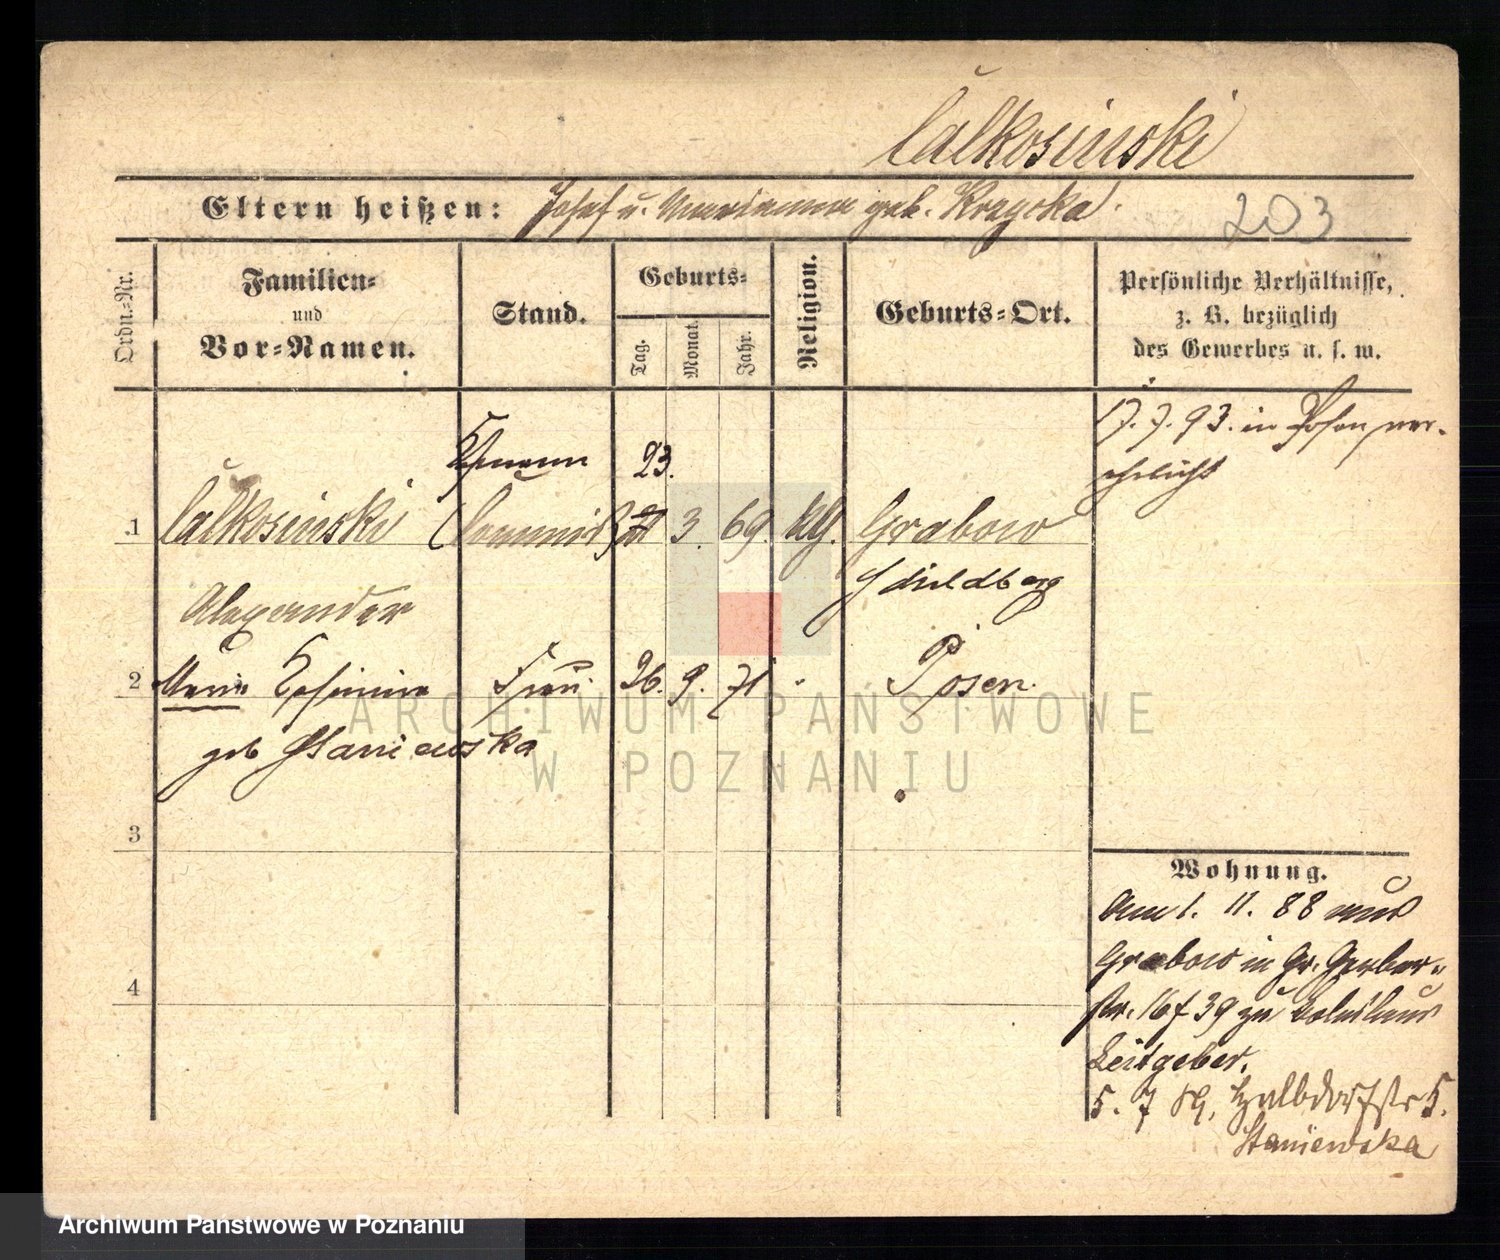 Calkosinski
Eltern heißen: Josef u. Marianna geb. Krzycka.
203
Ordn.-Nr.
Familien-
und
Vor-Namen.
Stand.
Geburts-
Tag.
Monat.
Jahr.
Religion.
Geburts-Ort.
Persönliche Verhältnisse,
z. B. bezüglich
des Gewerbes u. s. w.
17. 7. 93. in Posen ver-
ehelicht
23.
1 Calkosinski Commis 3. 69. Grabow
Schildberg
Alexander
2 Frau 26. 9. 71 Posen.
geb Staniewska
3
4
Wohnung.
Am 1. 11. 88 aus
Grabow in Gr. Gerber-
str. 16 f 39 zu
Leitgeber.
5. 7. Halbdorfstr 5.
Staniewska
ARCHIWUM PAŃSTWOWE
W POZNANIU
Archiwum Państwowe w Poznaniu